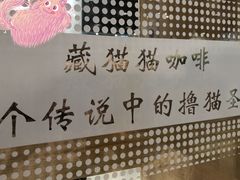 藏猫猫咖啡
个传说中的撸猫圣